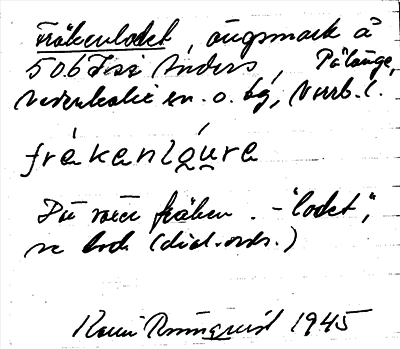 Fräkenlodet, ängsmark å
506 Jesi Anders, Pålänge,
Nederkalix sn. o. hg, Nrrb. l.
frȧ́kenlǫ́u̯re
Där växer fräken. - "lodet",
se lod (dial.ordb.)
Runnquist 1945